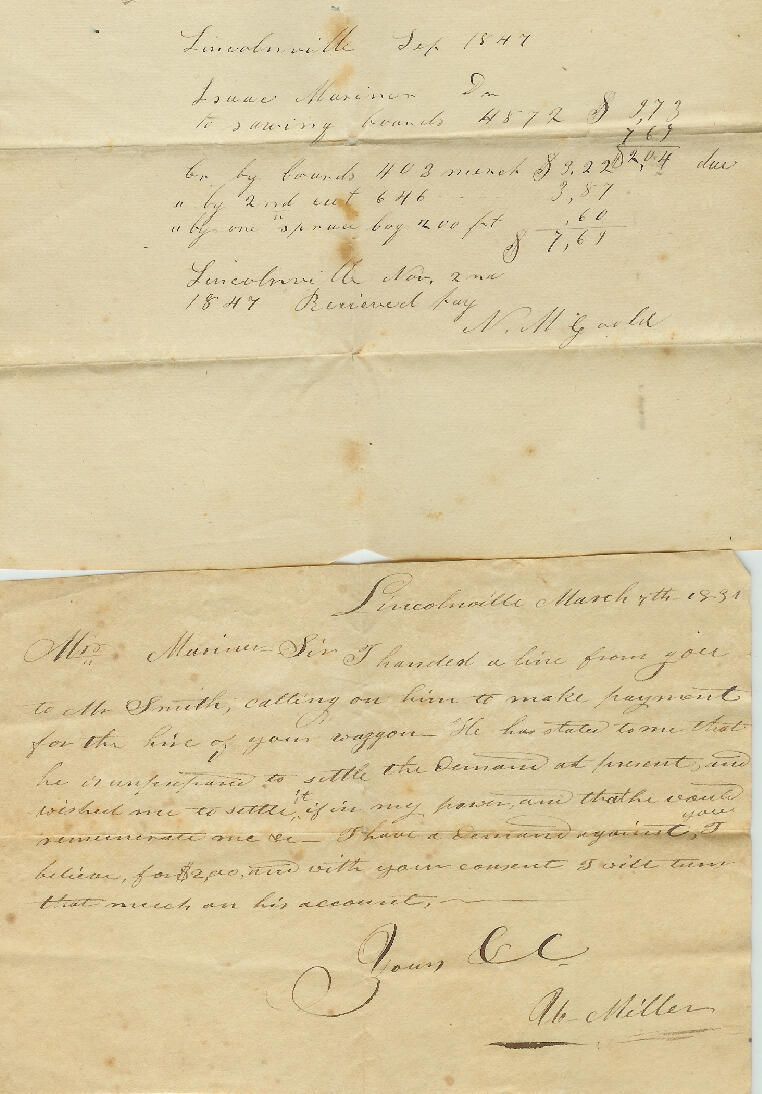 Lincolnville Sep 1847
Isaac Mariner Dr
to sawing boards 4872 $ 9,73
7,69
Cr by boards 403 merch $ 3.22 $2,04 due
" by 2nd cut 646 3,87
" by one spruce 200 feet ,60
$ 7,69
Lincolnville Nov. 2nd
1847 Recieved pay
N. M Goold
Lincolnville March 7th 1831
Mr Mariner Sir I handed a line from you
to Mr Smith, calling on him to make payment
for the hire of your waggon He has stated to me that
he is unprepared to settle the demand at present, and
wished me to settle it, if in my power, and that he would
remunerate me &c I have a demand against you, I
believe, for $2,00, and with your consent I will turn
that much on his account,
Yours &C
Miller